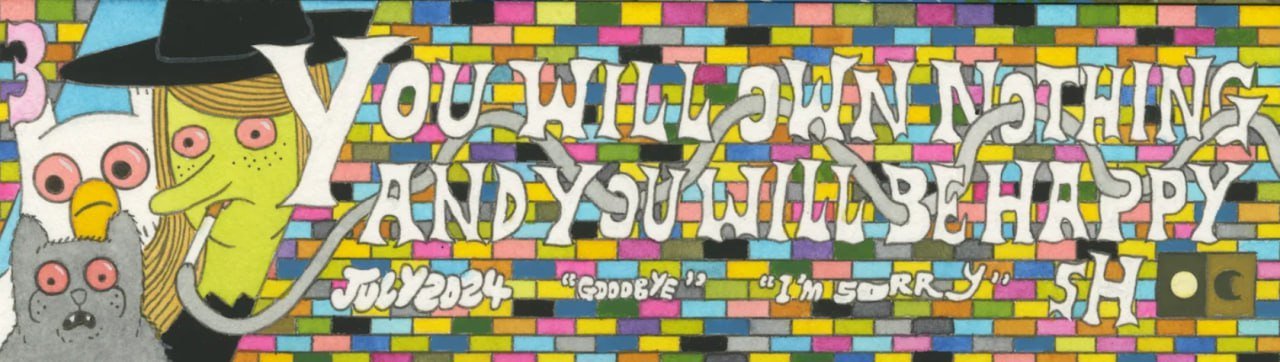 3
YOU WILL OWN NOTHING
AND YOU WILL BE HAPPY
JULY 2024 "GOODBYE" "I'm SORRY" SH